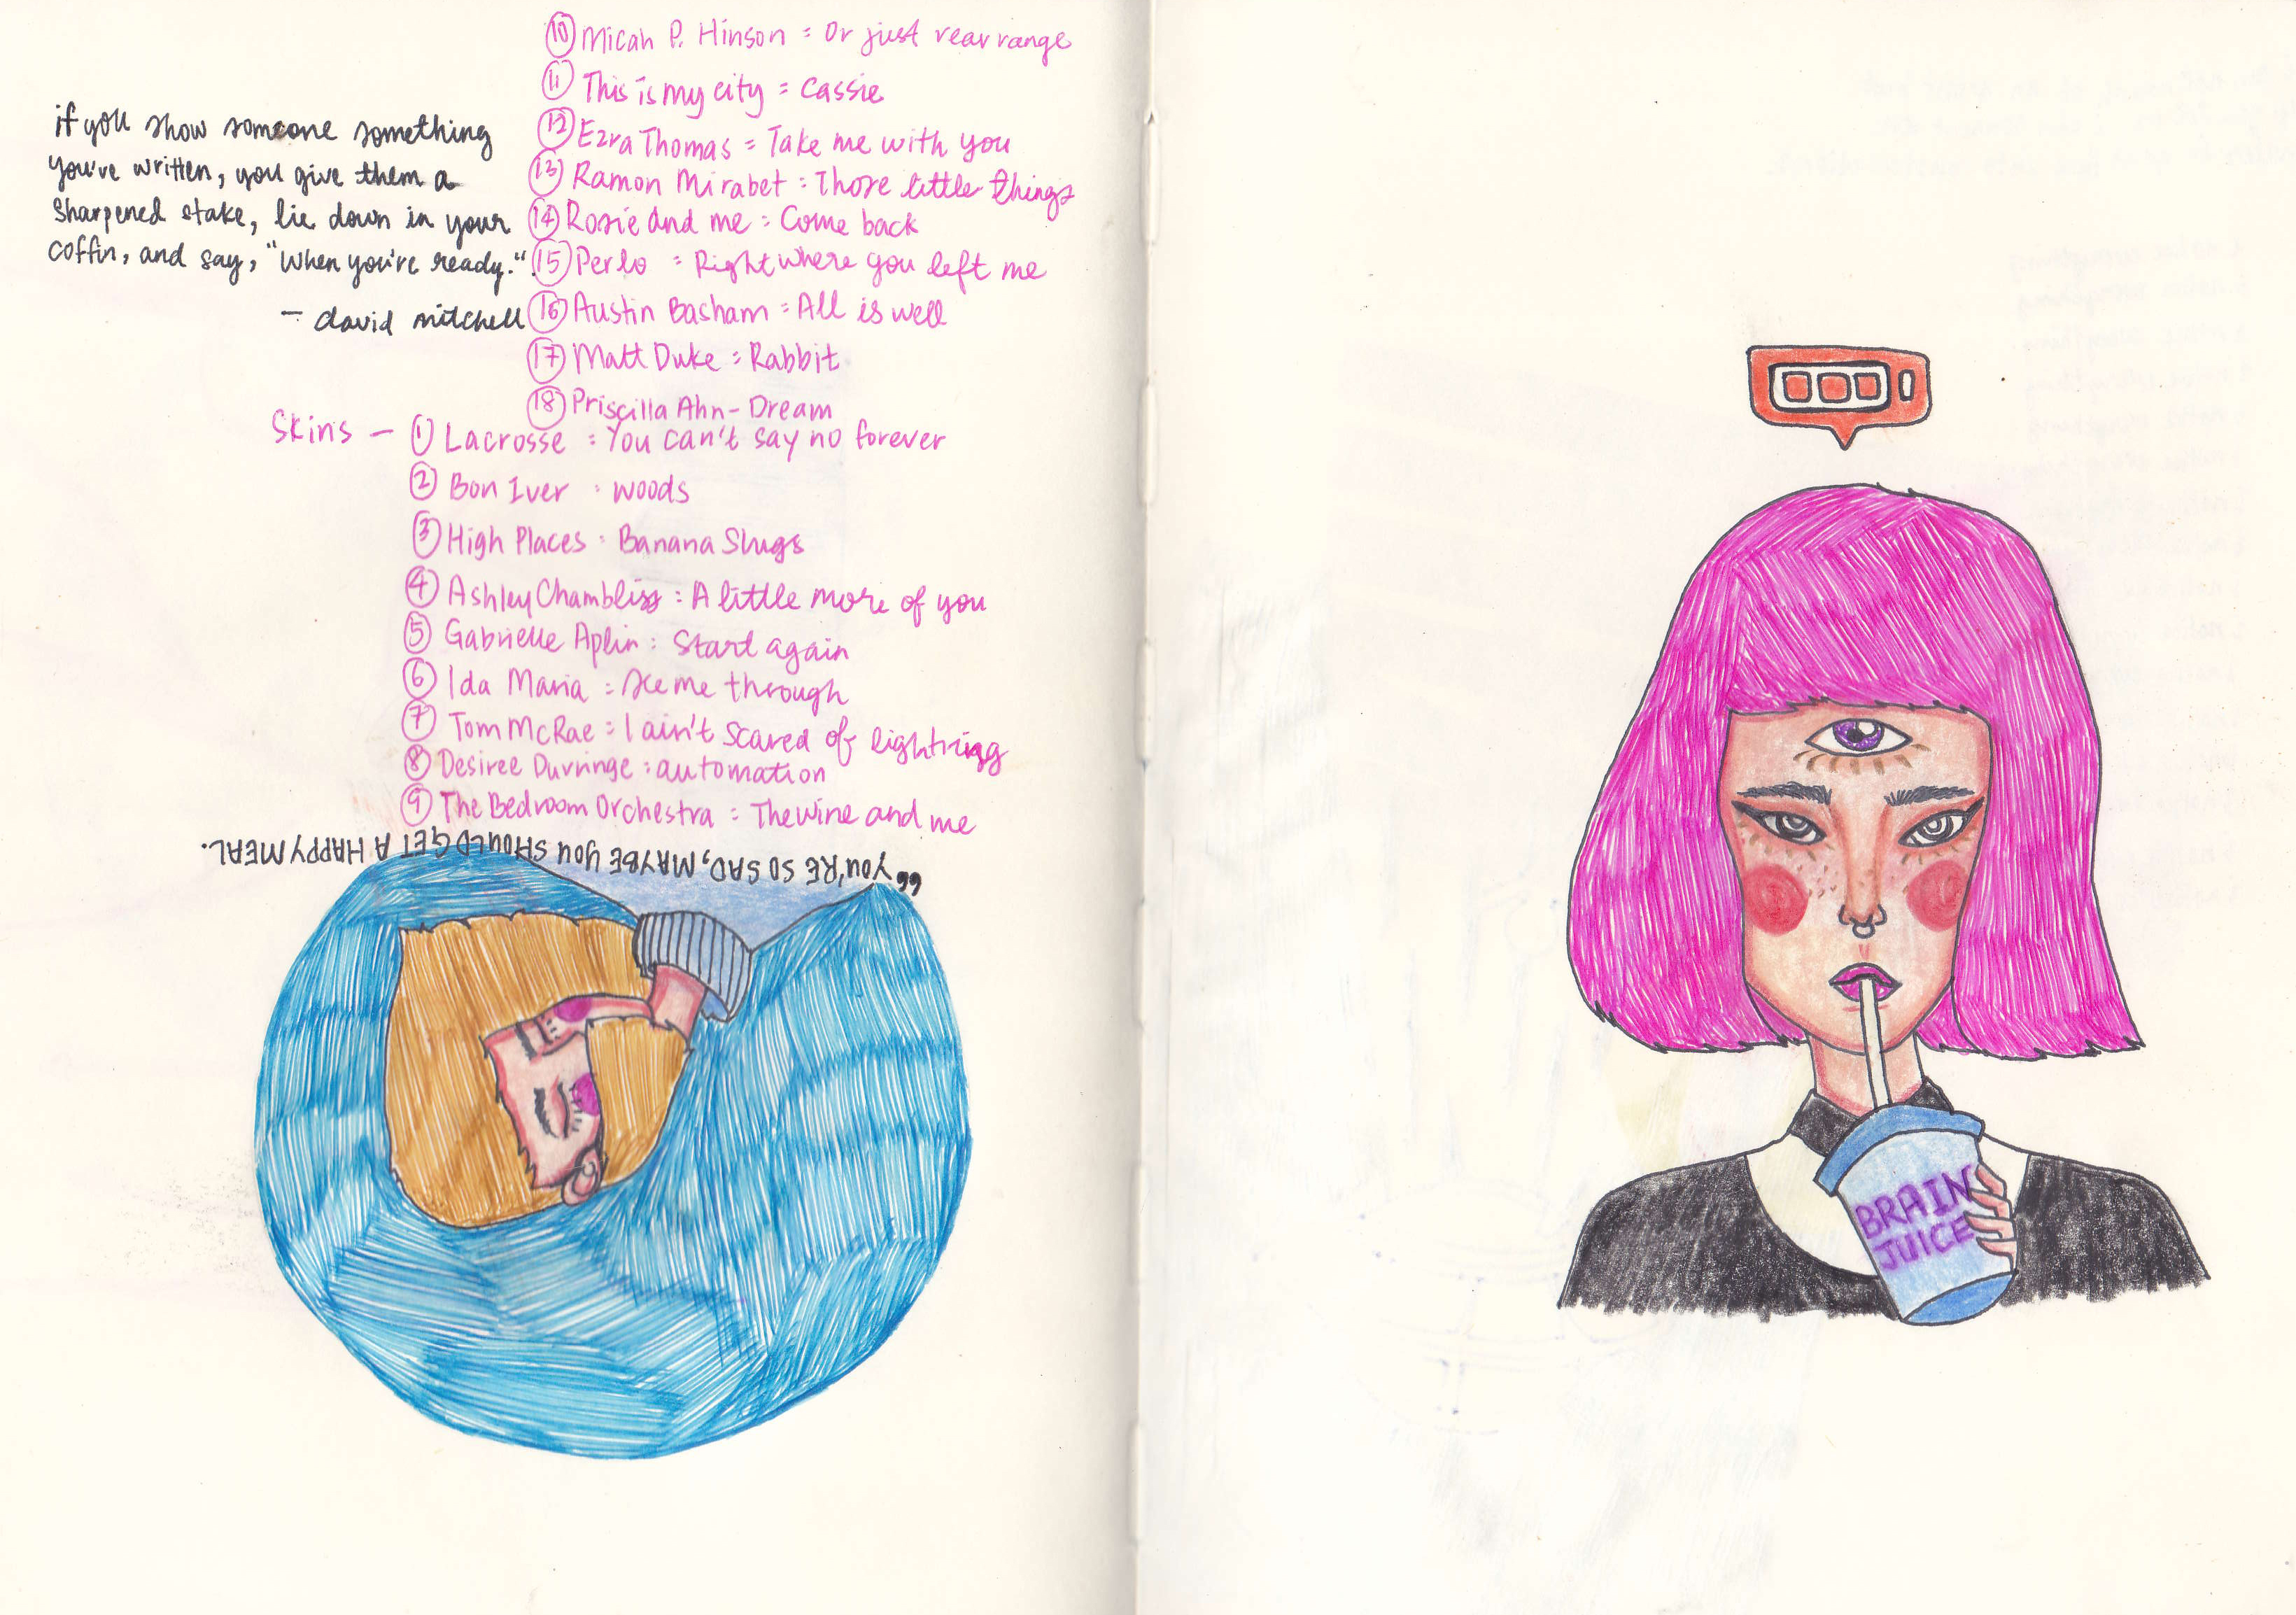 if you show someone something
you've written, you give them a
sharpened stake, lie down in your
coffin, and say, "when you're ready."
- david mitchell
⑩ Micah P. Hinson = Or just rearrange
⑪ This is my city = Cassie
⑫ Ezra Thomas = Take me with you
⑬ Ramon Mirabet : Those little things
⑭ Rosie and me : Come back
⑮ Perlo = Right where you left me
⑯ Austin Basham = All is well
⑰ Matt Duke : Rabbit
⑱ Priscilla Ahn - Dream
Skins - ① Lacrosse : You can't say no forever
② Bon Iver : woods
③ High Places : Banana Slugs
④ Ashley Chambliss : A little more of you
⑤ Gabrielle Aplin : Start again
⑥ Ida Maria = See me through
⑦ Tom McRae = I ain't scared of lightning
⑧ Desiree Durringe : automation
⑨ The Bedroom Orchestra = The wine and me
"YOU'RE SO SAD, MAYBE YOU SHOULD GET A HAPPY MEAL.
BRAIN
JUICE